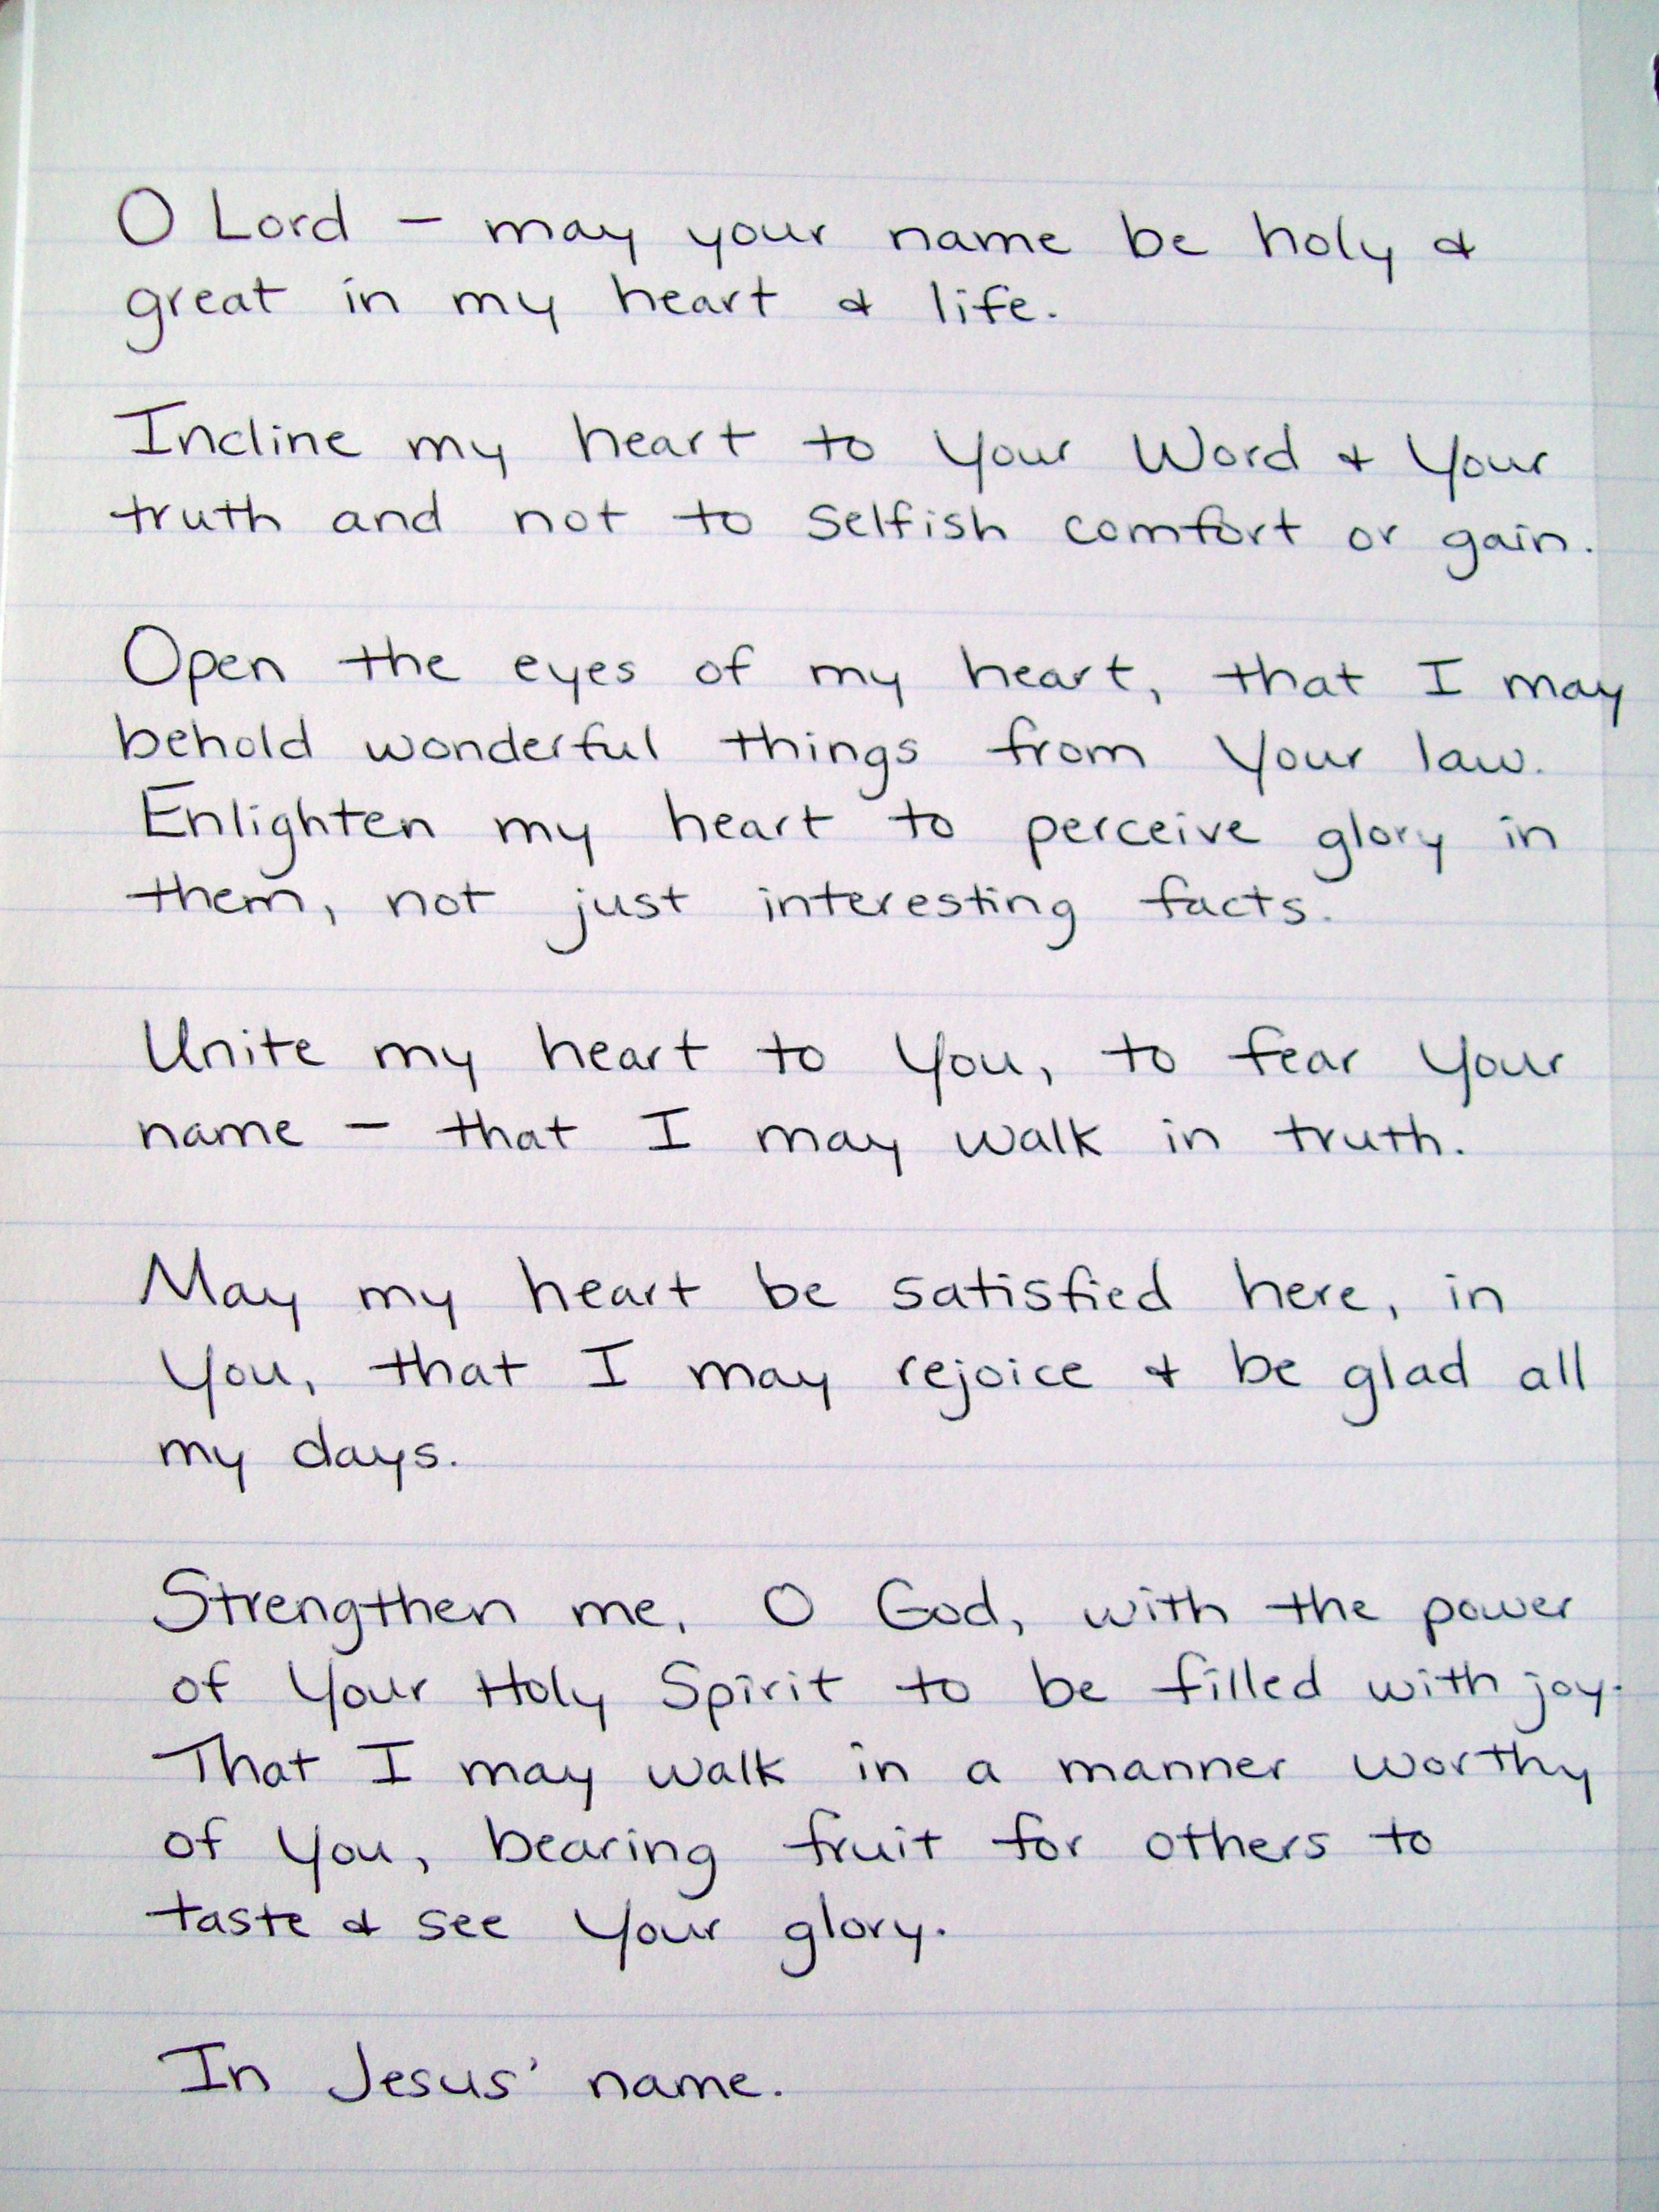 O Lord – may your name be holy &
great in my heart & life.
Incline my heart to Your Word & Your
truth and not to selfish comfort or gain.
Open the eyes of my heart, that I may
behold wonderful things from Your law.
Enlighten my heart to perceive glory in
them, not just interesting facts.
Unite my heart to You, to fear Your
name – that I may walk in truth.
May my heart be satisfied here, in
You, that I may rejoice & be glad all
my days.
Strengthen me, O God, with the power
of Your Holy Spirit to be filled with joy.
That I may walk in a manner worthy
of You, bearing fruit for others to
taste & see Your glory.
In Jesus' name.